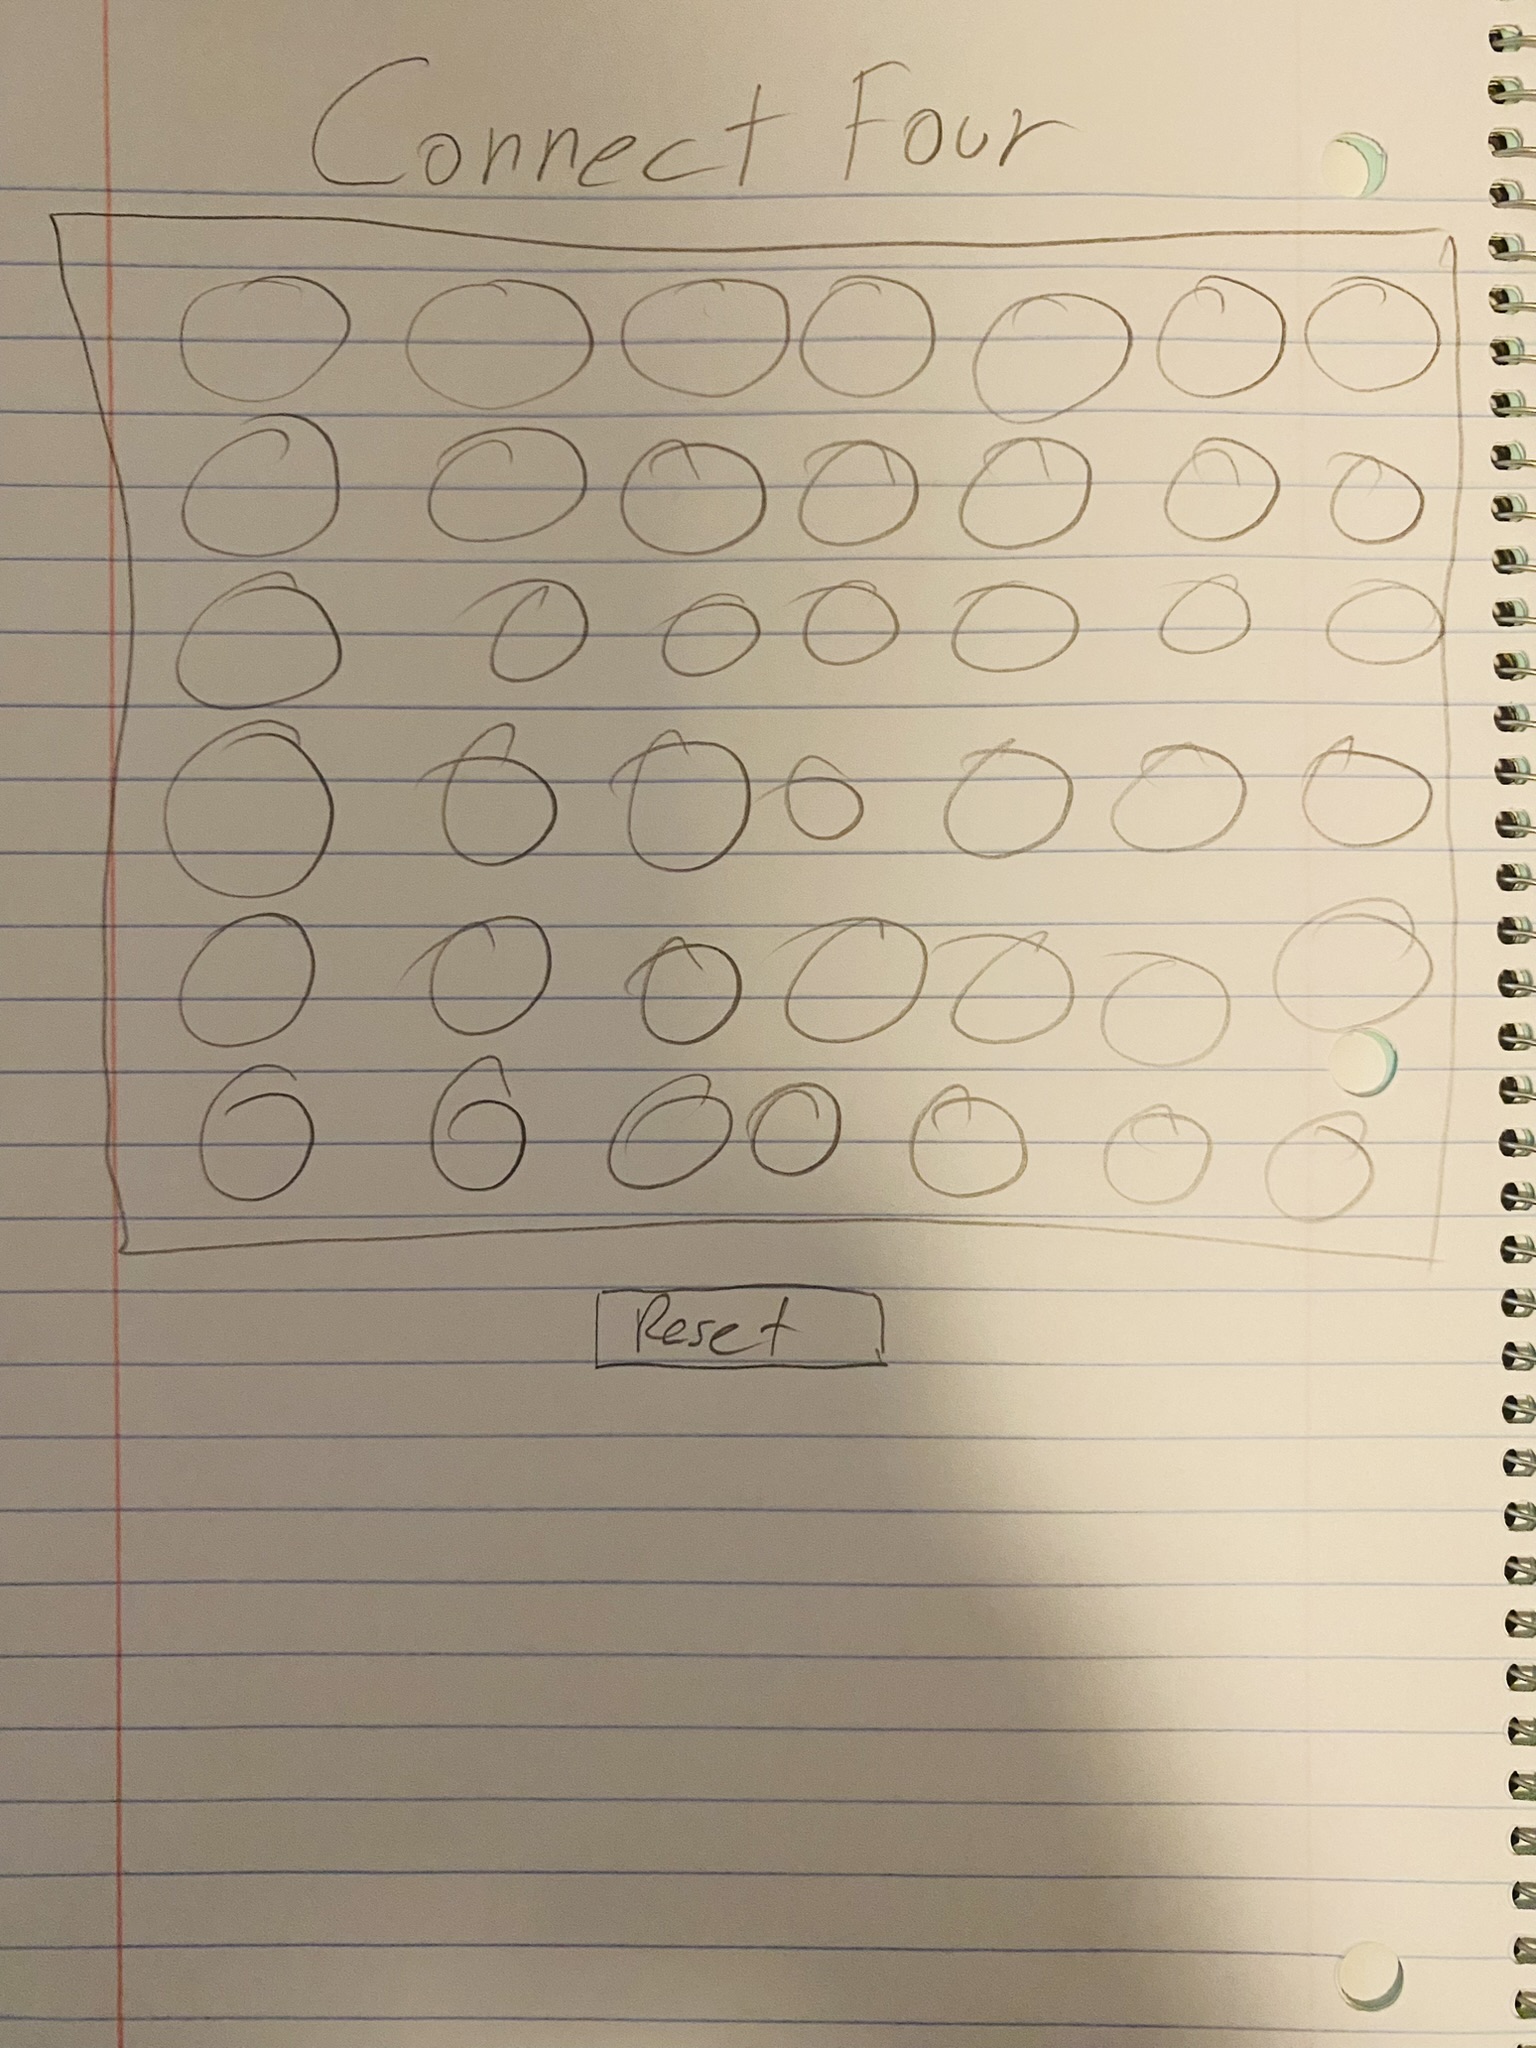 Connect Four
Reset